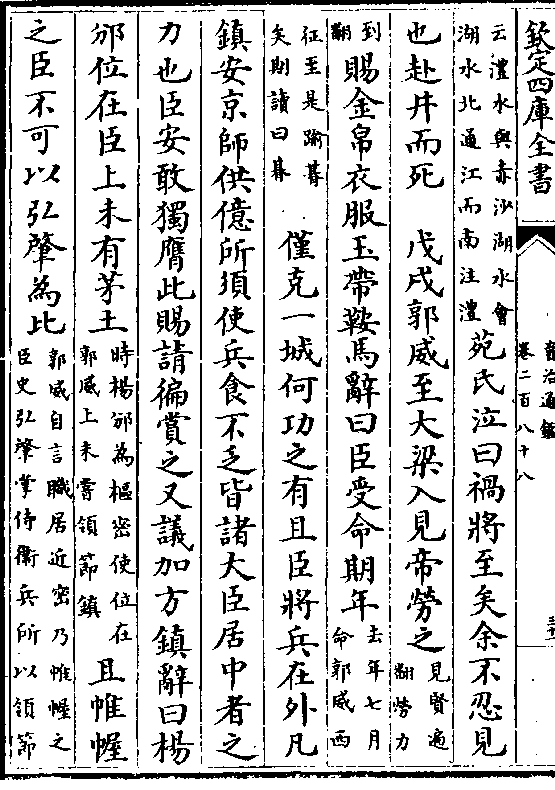 欽定四庫全書
資治通鑑
卷二百八十八
云澧水與赤沙湖水會
湖水北通江而南注澧
苑氏泣曰禍將至矣余不忍見
也赴井而死　戊戌郭威至大梁入見帝勞之
見賢遍
翻勞力
到
翻
賜金帛衣服玉帶鞍馬辭曰臣受命期年
去年七月
命郭威西
征至是踰朞
矣期讀曰朞
僅克一城何功之有且臣將兵在外凡
鎮安京師供億所須使兵食不乏皆諸大臣居中者之
力也臣安敢獨膺此賜請徧賞之又議加方鎮辭曰楊
邠位在臣上未有茅土
時楊邠為樞密使位在
郭威上未嘗領節鎮
且帷幄
之臣不可以弘肇為比
郭威自言職居近密乃帷幄之
臣史弘肇掌侍衞兵所以領節